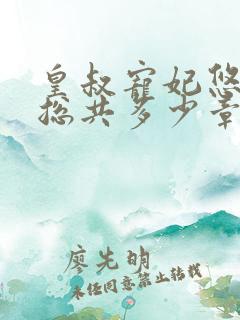 皇叔宠妃悠
总共多少章
廖先明
未经同意禁止转载